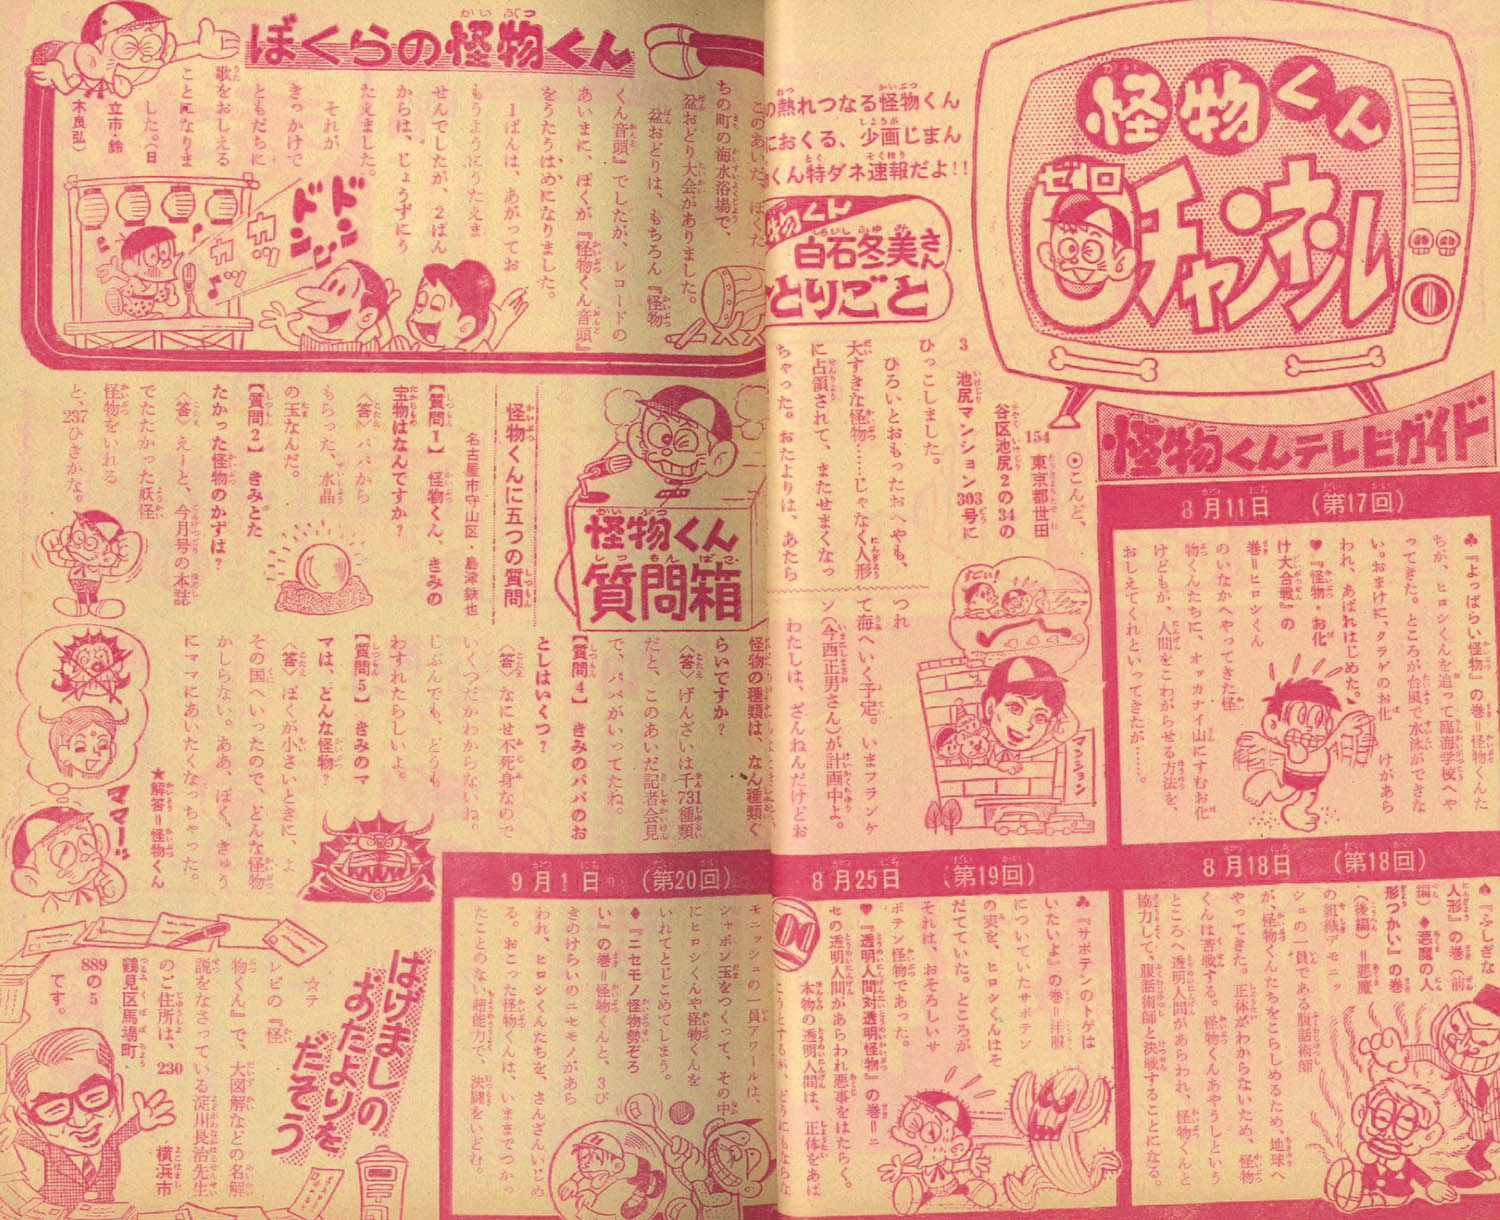 怪物くん
ゼロ
チャンネル
の熱れつなる怪物くん
におくる、少画じまん
くん特ダネ速報だよ!!
物くん
白石冬美さん
とりごと
⦿こんど、
154 東京都世田
谷区池尻2の34の
3 池尻マンション303号に
ひっこしました。
ひろいとおもったおへやも、
大すきな怪物……じゃなく人形
に占領されて、またせまくなっ
ちゃった。おたよりは、あたら
すごい!
マンション
つれ
て海へいく予定。いまフランケ
ン〈今西正男さん〉が計画中よ。
わたしは、ざんねんだけどお
怪物くんテレビガイド
8月11日 (第17回)
♣『よっぱらい怪物』の巻=怪物くんた
ちが、ヒロシくんを追って臨海学校へや
ってきた。ところが台風で水泳ができな
い。おまけに、クラゲのお化けがあら
われ、あばれはじめた。
♥『怪物・お化
け大合戦』の
巻=ヒロシくん
のいなかへやってきた怪
物くんたちに、オッカナイ山にすむお化
けどもが、人間をこわがらせる方法を、
おしえてくれといってきたが……。
8月18日 (第18回)
♠『ふしぎな
人形』の巻(前
編)♦『悪魔の人
形つかい』の巻
(後編)=悪魔
の組織デモニッ
シュの一員である腹話術師
が、怪物くんたちをこらしめるため、地球へ
やってきた。正体がわからないため、怪物
くんは苦戦する。怪物くんあやうしという
ところへ透明人間があらわれ、怪物くんと
協力して、腹話術師と決戦することになる。
8月25日 (第19回)
♣『サボテンのトゲは
いたいよ』の巻=洋服
についていたサボテン
の実を、ヒロシくんはそ
だてていた。ところが
それは、おそろしいサ
ボテン怪物であった。
♥『透明人間対透明怪物』の巻=ニ
セの透明人間があらわれ悪事をはたらく。
本物の透明人間は、正体をあば
9月1日 (第20回)
モニッシュの一員アワールは、
シャボン玉をつくって、その中
にヒロシくんや怪物くんを
いれてとじこめてしまう。
♦『ニセモノ怪物勢ぞろ
い』の巻=怪物くんと、3び
きのけらいのニセモノがあら
われ、ヒロシくんたちを、さんざんいじめ
る。おこった怪物くんは、いままでつかっ
たことのない超能力で、決闘をいどむ。
ぼくらの怪物くん
このあいだ、ぼくた
ちの町の海水浴場で、
盆おどり大会がありました。
盆おどりは、もちろん『怪物
くん音頭』でしたが、レコードの
あいまに、ぼくが『怪物くん音頭』
をうたうはめになりました。
1ばんは、あがってお
もうようにうたえま
せんでしたが、2ばん
からは、じょうずにう
たえました。
それが
きっかけで
ともだちに
歌をおしえる
ことになりま
した。(日
立市・鈴
木良弘)
ドンドン
カッカッ
怪物くん
質問箱
怪物くんに五つの質問
名古屋市守山区・島津鉄也
【質問1】 怪物くん、きみの
宝物はなんですか?
〈答〉パパから
もらった、水晶
の玉なんだ。
【質問2】 きみとた
たかった怪物のかずは?
〈答〉えーと、今月号の本誌
でたたかった妖怪
怪物をいれる
と、237ひきかな。
怪物の種類は、なん種類ぐ
らいですか?
〈答〉げんざいは千731種類
だと、このあいだ記者会見
で、パパがいってたね。
【質問4】 きみのパパのお
としはいくつ?
〈答〉なにせ不死身なので
いくつだかわからないね。
じぶんでも、どうも
わすれたらしいよ。
【質問5】 きみのマ
マは、どんな怪物?
〈答〉ぼくが小さいときに、よ
その国へいったので、どんな怪物
かしらない。ああ、ぼく、きゅう
にママにあいたくなっちゃった。
★解答=怪物くん
ママー!!
はげましの
おたよりを
だそう
☆テ
レビの『怪
物くん』で、大図解などの名解
説をなさっている淀川長治先生
のご住所は、230 横浜市
鶴見区馬場町
889の5
です。